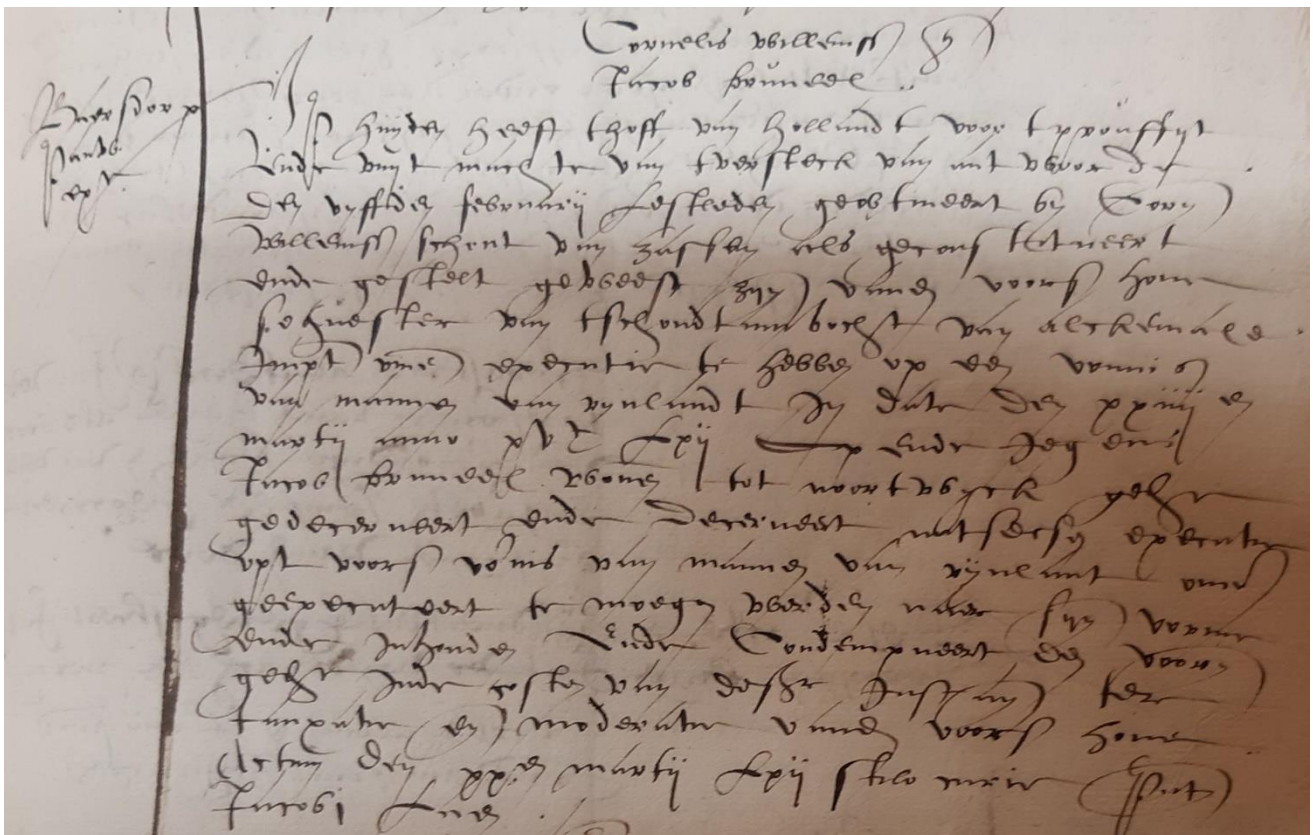 Cornelis willemss
Jacob bruneel
Op huyden heeft thoff van hollandt voor tprouffyt
Ende vuyt machte van tversteck van antwoorde
den vyfften february lestleden geobtineert by Corn
willemss schout van als geconstitueert
ende gestelt geweest zyn vanden voors hove
van tschoudtambocht van alckemade
Impt omme executie te hebben op een vonnis
van mannen van rynlandt In date den xxiiij en
martij anno xvc lxij op ende Jegens
Jacob bruneel wonen tot noortwyck gehr
gedecerneert ende decerneert mitsdesen executie
opt voors vonnis van mannen van rynlant omme
geexecuteert te moegen werden naer syn vorme
ende Inhouden Ende Condempneert den voorn
gehr Inde costen van deser Instan ter
tauxatie en moderatie vanden voors hove
Actum den xxen martij lxij stilo curie
Jacobi